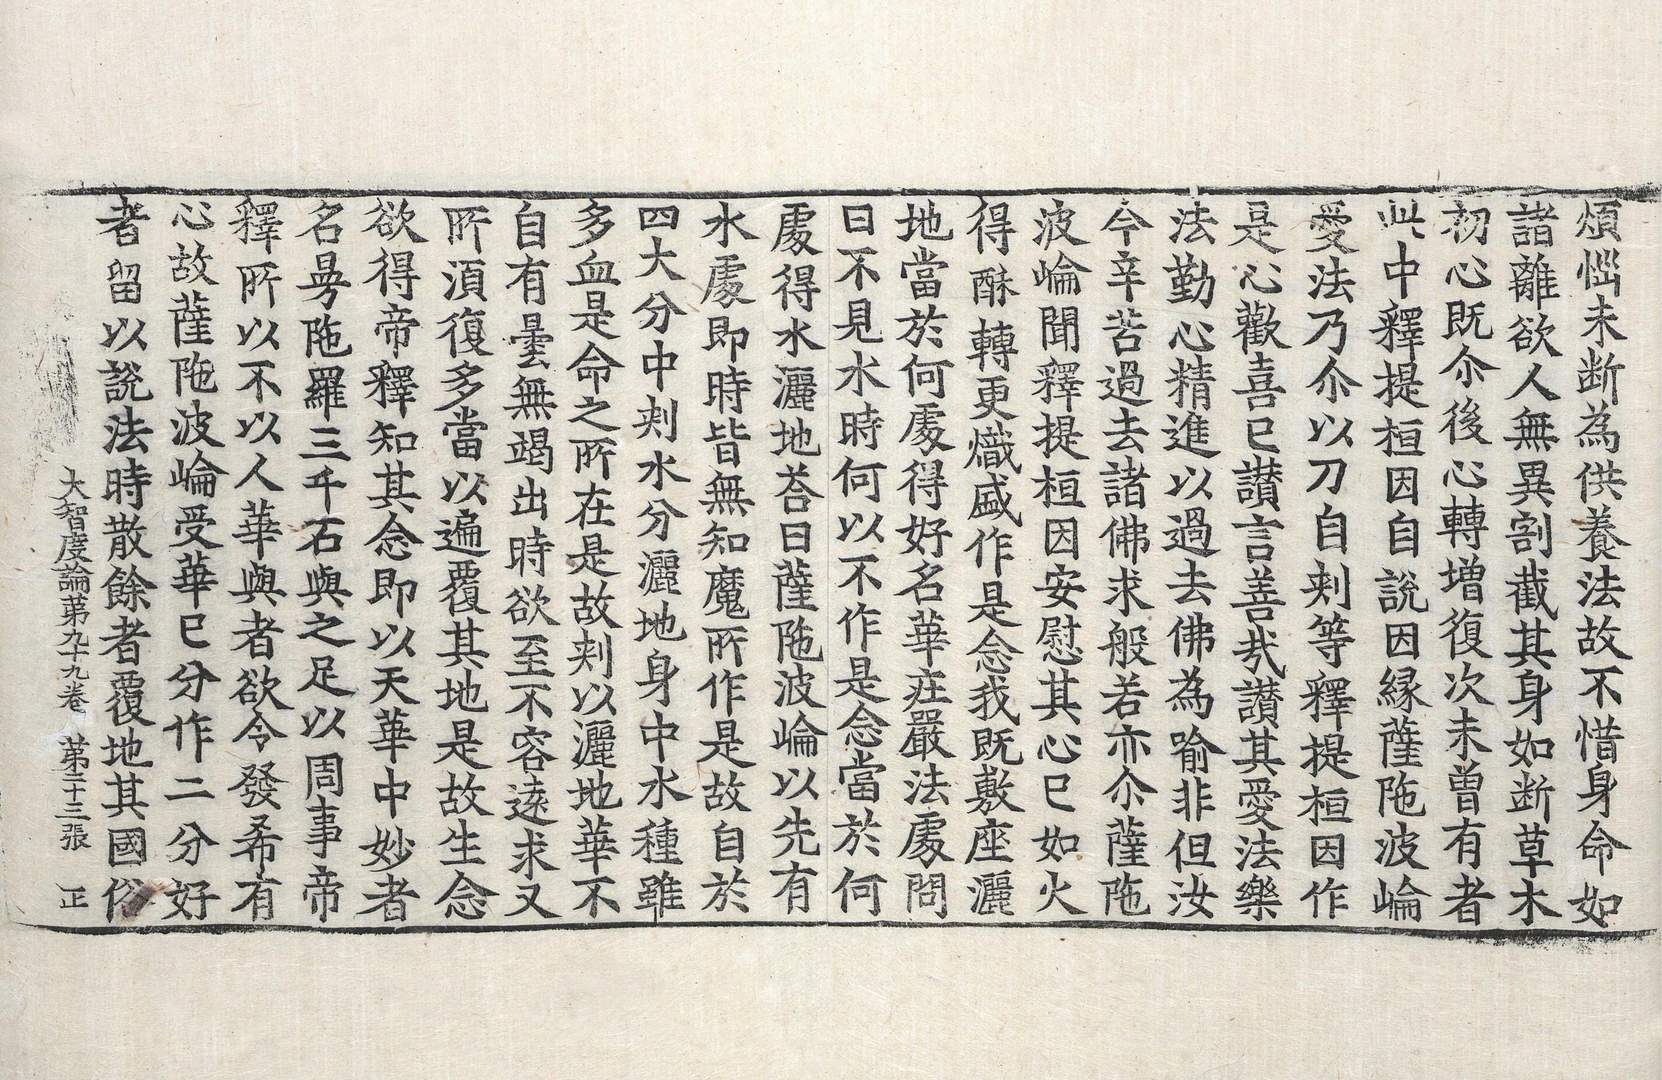 煩惱未断為供養法故不惜身命如
諸離欲人無異割截其身如断草木
初心既尒後心轉增復次未曾有者
此中釋提桓因自說因緣薩陁波崘
愛法乃尒以刀自刾等釋提桓因作
是心歡喜已讃言善㢤讃其愛法樂
法勤心精進以過去佛為喻非但汝
今辛苦過去諸佛求般若亦尒薩陁
波崘聞釋提桓因安慰其心已如火
得酥轉更熾盛作是念我既敷座灑
地當於何處得好名華莊嚴法處問
曰不見水時何以不作是念當於何
處得水灑地荅曰薩陁波崘以先有
水處即時皆無知魔所作是故自於
四大分中刾水分灑地身中水種雖
多血是命之所在是故刾以灑地華不
自有曇無竭出時欲至不容遠求又
所須復多當以遍覆其地是故生念
欲得帝釋知其念即以天華中妙者
名曼陁羅三千石與之足以周事帝
釋所以不以人華與者欲令發希有
心故薩陁波崘受華已分作二分好
者留以說法時散餘者覆地其國俗
大智度論第九十九卷 第二十三張 正